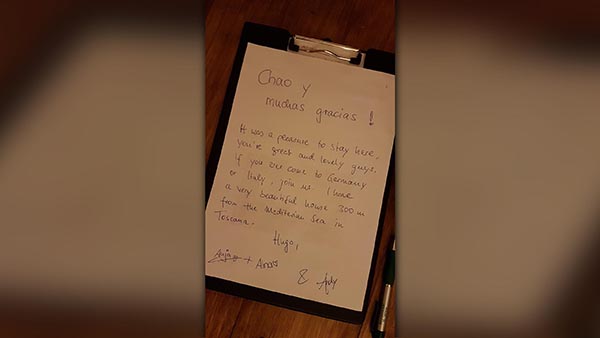 Chao y
muchas gracias !
It was a pleasure to stay here,
you're great and lovely guys.
If you ever come to Germany
or Italy, join us. I have
a very beautiful house 300 m
from the Mediterian Sea in
Toscana.
Hugo,
+
&